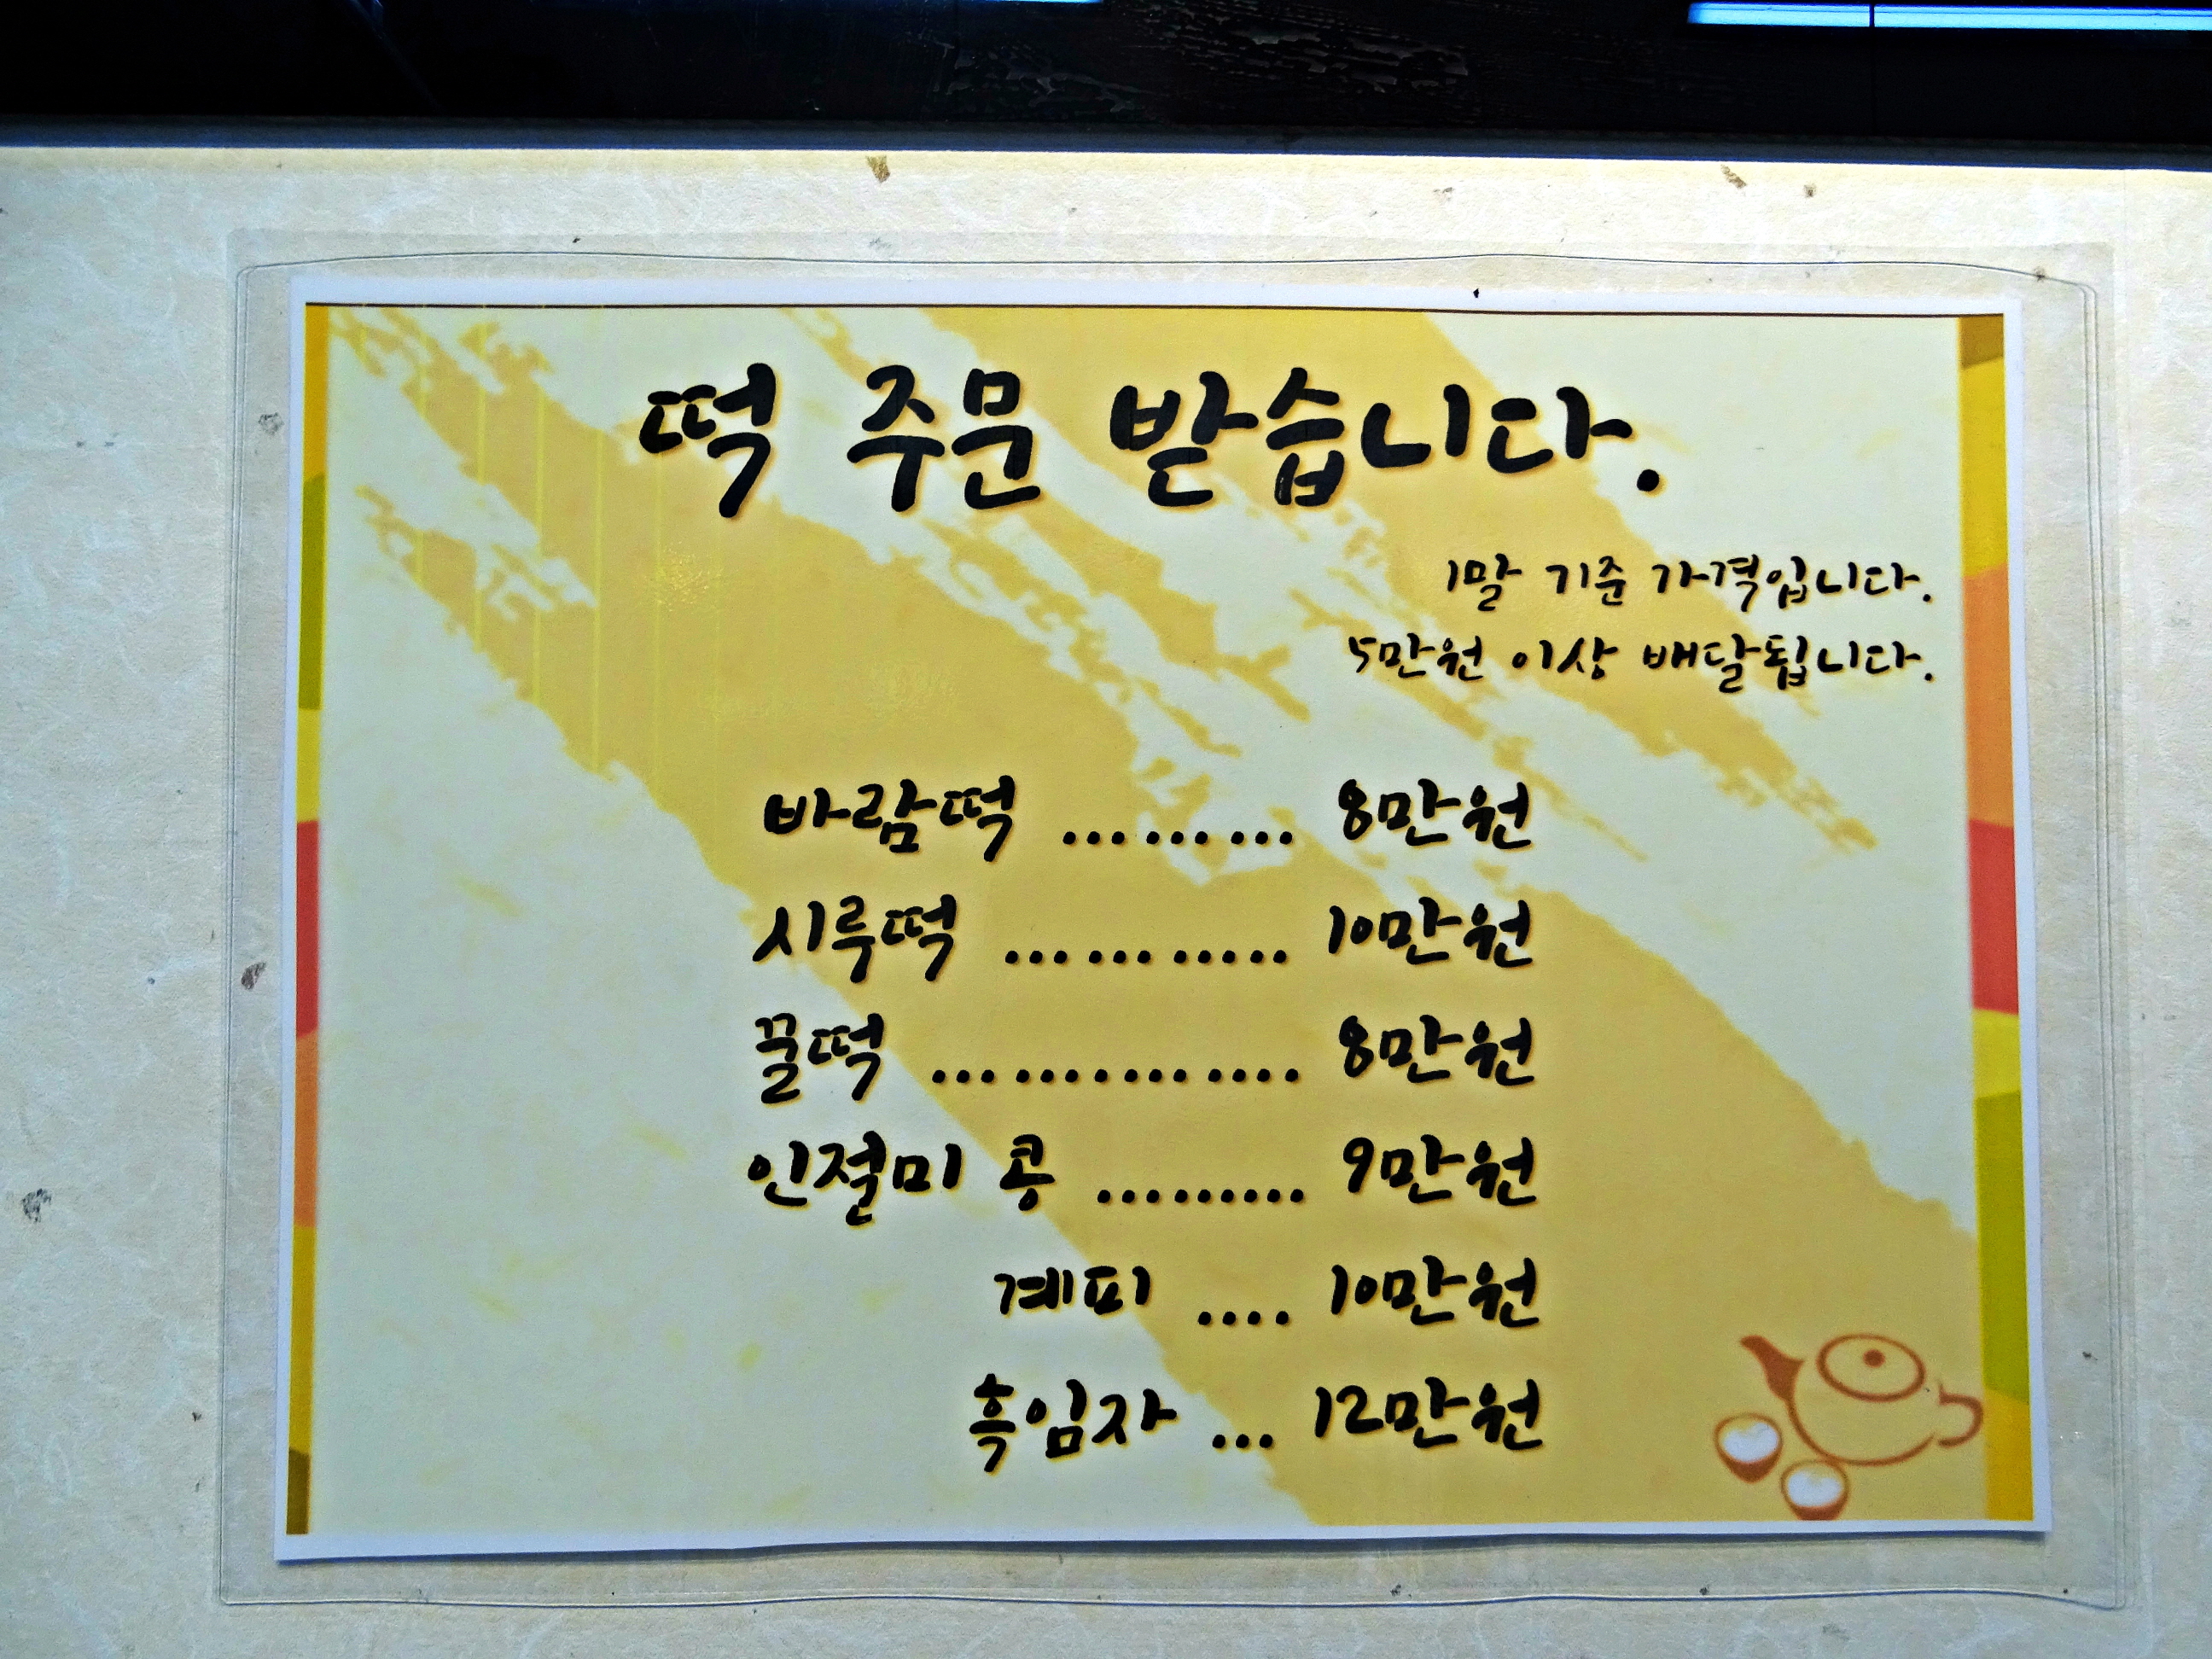 떡 주문 받습니다.
1말 기준 가격입니다.
5만원 이상 배달됩니다.
바람떡 ......... 8만원
시루떡 ........... 10만원
꿀떡 .............. 8만원
인절미 콩 ......... 9만원
계피 .... 10만원
흑임자 ... 12만원